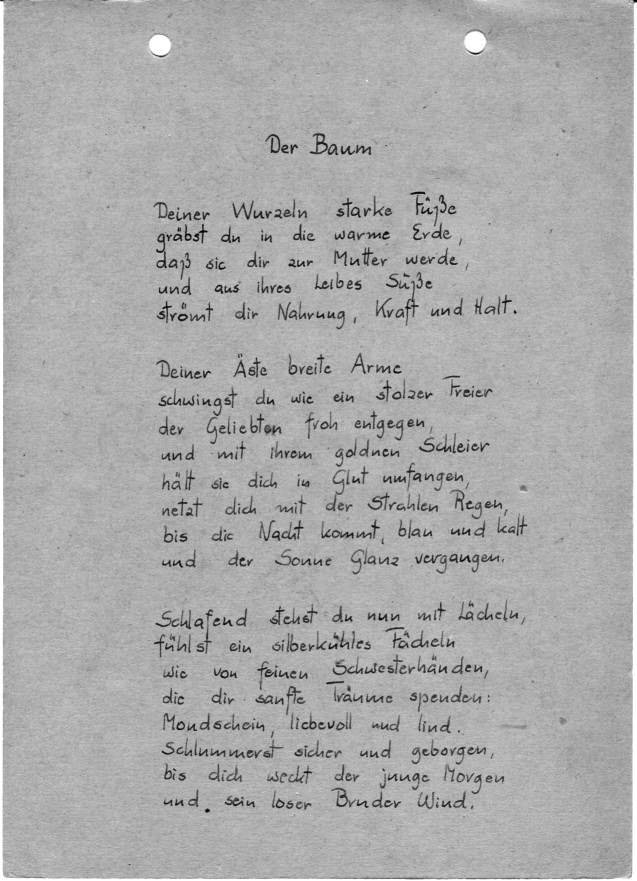 Der Baum
Deiner Wurzeln starke Füße
gräbst du in die warme Erde,
daß sie dir zur Mutter werde,
und aus ihres Leibes Süße
strömt dir Nahrung, Kraft und Halt.
Deiner Äste breite Arme
schwingst du wie ein stolzer Freier
der Geliebten froh entgegen,
und mit ihrem goldnen Schleier
hält sie dich in Glut umfangen,
netzt dich mit der Strahlen Regen,
bis die Nacht kommt, blau und kalt
und der Sonne Glanz vergangen.
Schlafend stehst du nun mit Lächeln,
fühlst ein silberkühles Fächeln
wie von feinen Schwesterhänden,
die dir sanfte Träume spenden:
Mondschein, liebevoll und lind.
Schlummerst sicher und geborgen,
bis dich weckt der junge Morgen
und sein loser Bruder Wind.